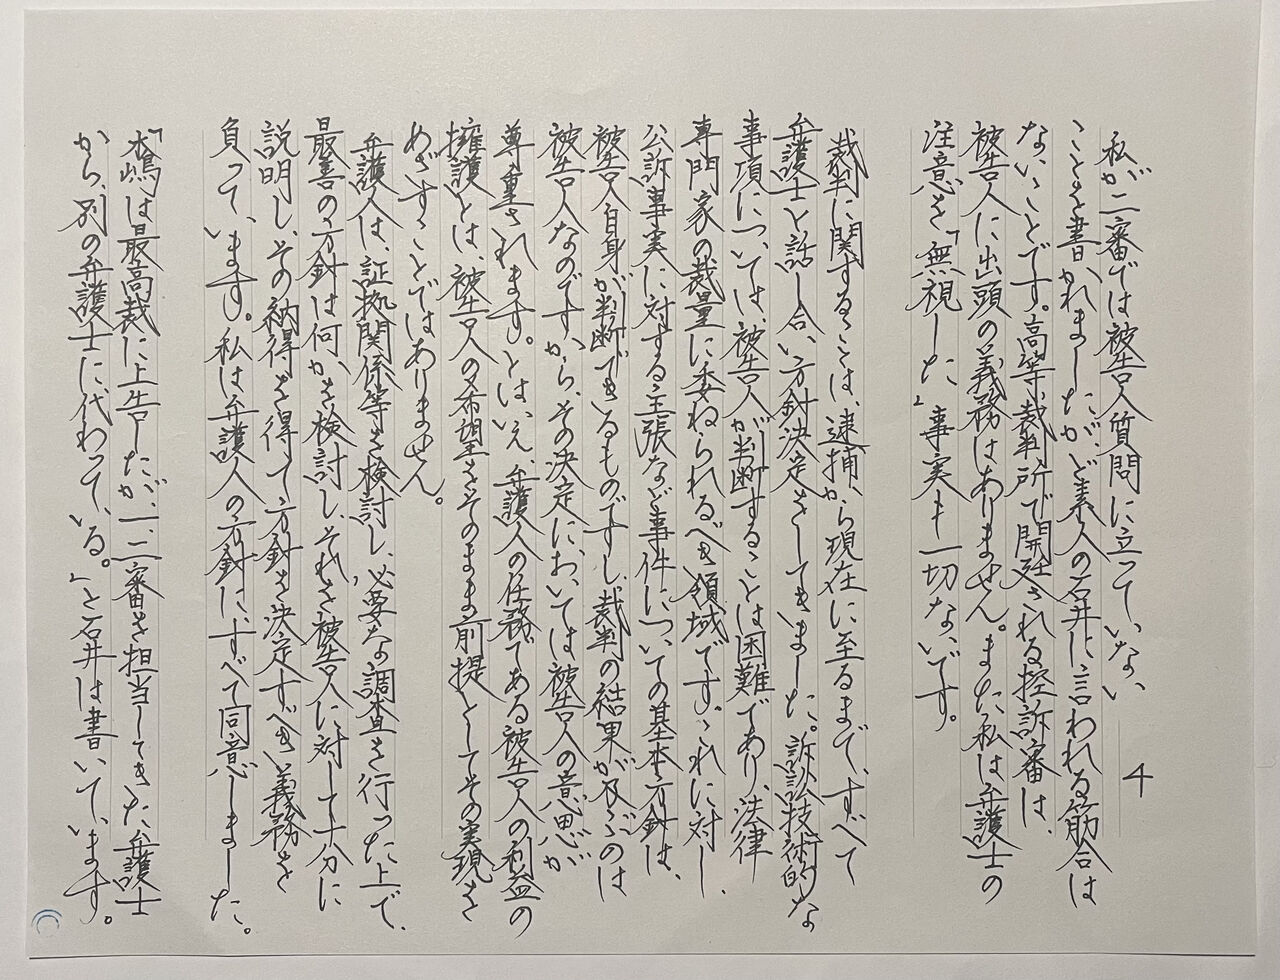 4
私が二審では被告人質問に立っていない
ことを書かれましたがど素人の石井に言われる筋合は
ないことです。高等裁判所で開廷される控訴審は、
被告人に出頭の義務はありません。また私は弁護士の
注意を「無視した」事実も一切ないです。
裁判に関することは、逮捕から現在に至るまで、すべて
弁護士と話し合い方針決定をしてきました。訴訟技術的な
事項については、被告人が判断することは困難であり、法律
専門家の裁量に委ねられるべき領域です。これに対し、
公訴事実に対する主張など事件についての基本方針は、
被告人自身が判断できるものですし、裁判の結果が及ぶのは
被告人なのですから、その決定においては被告人の意思が
尊重されます。とはいえ、弁護人の任務である被告人の利益の
擁護とは、被告人の希望をそのまま前提としてその実現を
めざすことではありません。
弁護人は、証拠関係等を検討し、必要な調査を行った上で、
最善の方針は何かを検討し、それを被告人に対して十分に
説明し、その納得を得て方針を決定すべき義務を
負っています。私は弁護人の方針にすべて同意しました。
「木嶋は最高裁に上告したが、一、二審を担当してきた弁護士
から、別の弁護士に代わっている。」と石井は書いています。